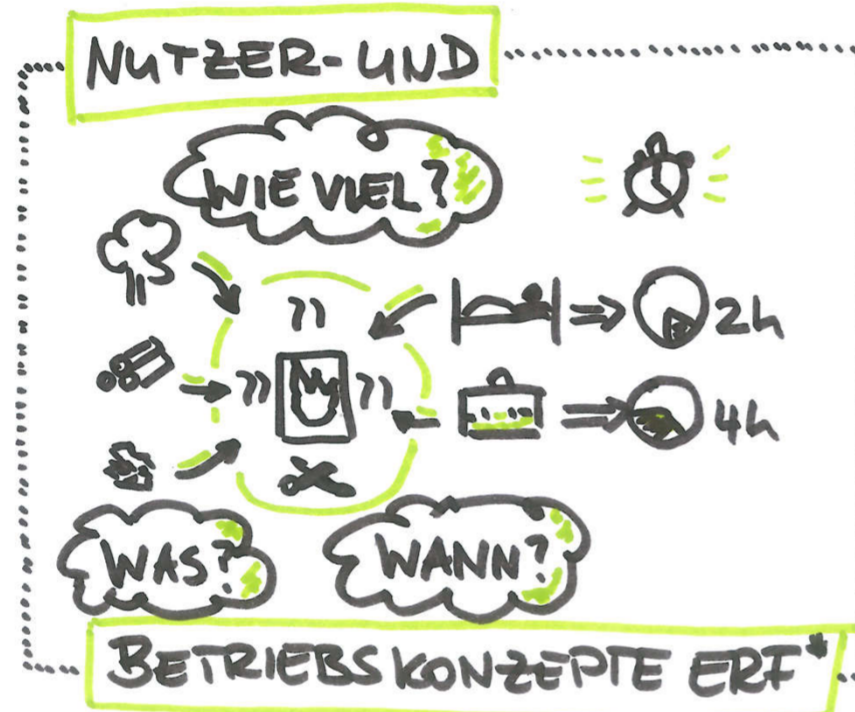 NUTZER-UND
WIE VIEL?
2h
4h
WAS?
WANN?
BETRIEBSKONZEPTE ERF*